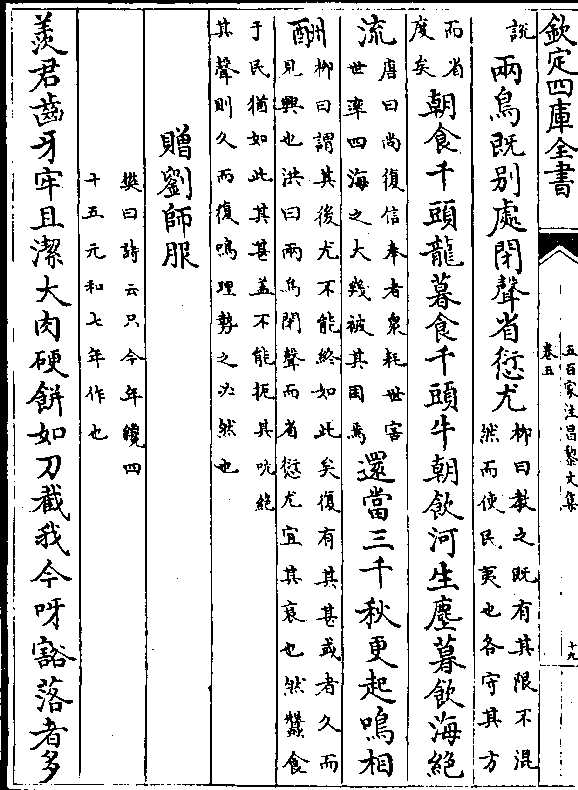 欽定四庫全書
五百家注昌黎文集
卷五
十九
說兩鳥既别處閉聲省愆尤柳曰教之既有其限不混然而使民夷也各守其方
而省度矣朝食千頭龍暮食千頭牛朝飲河生塵暮飲海絶
流唐曰尚復信奉者衆耗世害世率四海之大幾被其困焉還當三千秋更起鳴相
酬柳曰謂其後尤不能終如此矣復有其甚或者久而見興也洪曰兩鳥閉聲而省愆尤宜其哀也然蠶食
于民猶如此其甚蓋不能扼其吭絶其聲則久而復鳴理勢之必然也
贈劉師服
樊曰詩云只今年纔四十五元和七年作也
羨君齒牙牢且潔大肉硬餅如刀截我今呀豁落者多